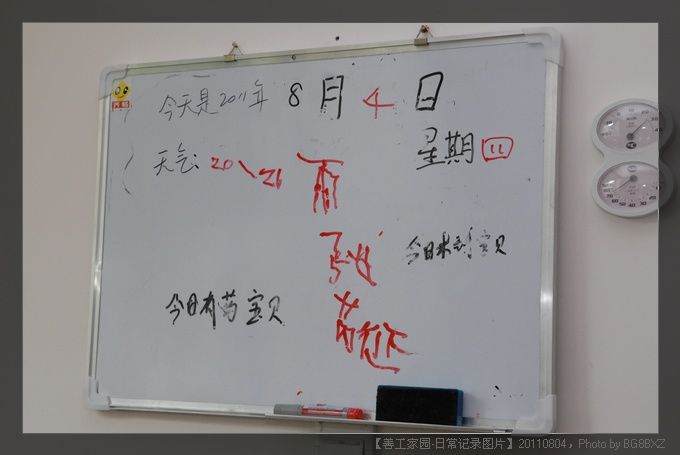 今天是2011年 8月4日
天气: 20 \ 21 雨 星期四
今日未到宝贝
今日有药宝贝
【善工家园-日常记录图片】20110804，Photo by BG8BXZ